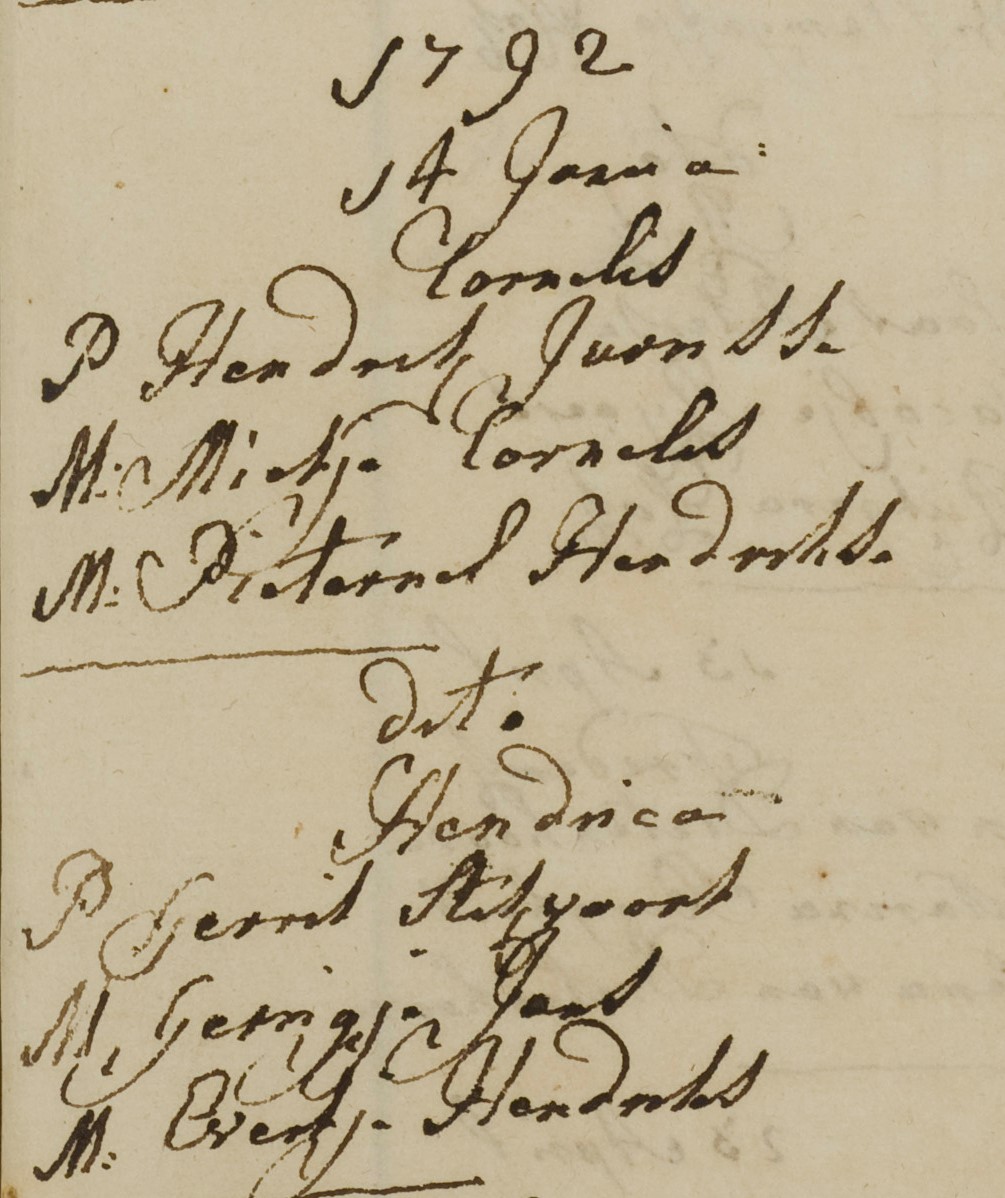 1792
14 Janua:
Cornelis
P Hendrik Jurrissz
M: Mietje Cornelis
M: Pieternel Hendrikse
dito
Hendrica
P Gerrit Stitvoort
M, Gerrigje Jans
M: Evertje Hendriks